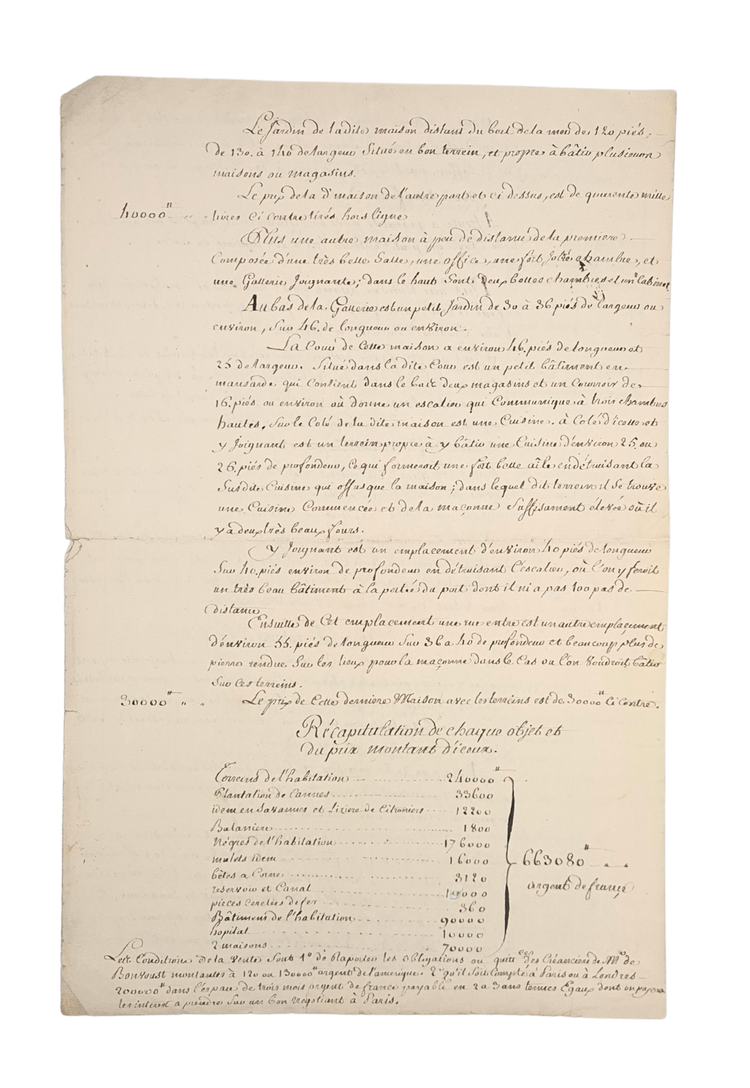 Le Jardin de ladite maison distans du bout de la mou de 120 piés,
de 130. à 140 de largeur Situé en bon terrein, et propre à bâtir plusieurs
maisons ou magasins.
Le prix de la d.e maison de l'autre part et ci dessus, est de quarente mille
40000tt " " livres Ci contre tirés hors ligne
Plus une autre maison à peu de distance de la premiere
Composée d'une très belle Salle, une office, une fort Jolie chambre, et
une Gallerie Joignante; dans le haut Sont Deux belles chambres et un Cabinet
Au bas de la Gallerie est un petit Jardin de 30 à 36 piés de largeur ou
environ, Sur 46. de longueur ou environ.
La Cour de Cette maison a environ 46. piés de longueur et
25 de largeur. Situé dans la dite Cour est un petit bâtiment en
mansarde qui Contient dans le bas deux magasins et un Couroir de
16. piés ou environ où donne un escalier qui Communique à trois chambres
hautes. Sur le Coté de la dite maison est une Cuisine. à Coté d'icelle et
y Joignant est un terrein propre à y bâtir une Cuisine d'environ 25, ou
26, piés de profondeur, Ce qui formeroit une fort belle aîle en détruisant la
Susdite Cuisine qui offusque la maison; dans lequel dit terrein il Se trouve
une Cuisine Commencée et de la maçonne Suffisament élevée où il
y a deux très beaux fours.
y Joignant est un emplacement d'environ 40 piés de longueur
Sur 40. piés environ de profondeur en détruisant l'escalier, où l'on y feroit
un très beau bâtiment à la portée du port dont il n'a pas 100 pas de
distance
Ensuitte de Cet emplacement une rue entre est un autre emplacement
d'environ 55 piés de longueur Sur 36 a 40 de profondeur et beaucoup plus de
pierres rendue Sur les lieux pour la maçonne dans le Cas ou l'on Voudroit bâtir
Sur Ces terreins.
30000tt " " Le prix de Cette derniere Maison avec les terreins est de 30000tt Ci Contre.
Récapitulation de chaque objet et
du prix montant d'iceux.
Terreins de l'habitation 240000tt
Plantation de Cannes 33600
idem en Savannes et Liziere de Citroniers 12200
Bananiere 1800
Négres de l'habitation 176000
mulets idem 16000
bêtes a Cornes 3120
663080tt " "
argent de france
reservoir et Canal 10000
pieces cerclées de fer 360
Bâtimens de l'habitation 90000
hopital 10000
2 maisons 70000
Les Conditions de la Vente Sont 1.° de raporter les obligations ou quitt.ces des Créanciers de M.r de
Bonvoust montantes à 120 ou 130000tt argent de l'amerique. 2.° qu'il Soit Compté à Paris ou à Londres
200000tt dans l'espace de trois mois argent de france payable en 2 a 3 ans termes Egaux dont on payera
les interêt a prendre Sur un bon négotiant à Paris.